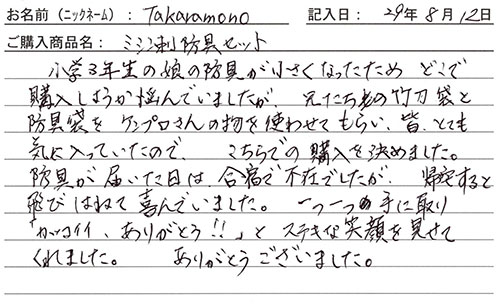 お名前（ニックネーム）： Takaramono 記入日： 29年 8月 12日
ご購入商品名： ミシン刺防具セット
小学3年生の娘の防具が小さくなったため どこで
購入しようか悩んでいましたが、兄たち者の竹刀袋と
防具袋を ケンプロさんの物を使わせてもらい、皆、とても
気に入っていたので、こちらでの購入を決めました。
防具が届いた日は、合宿で不在でしたが、帰宅すると
飛びはねて喜んでいました。一つ一つ手に取り
「カッコイイ、ありがとう!!」と ステキな笑顔を見せて
くれました。 ありがとうございました。